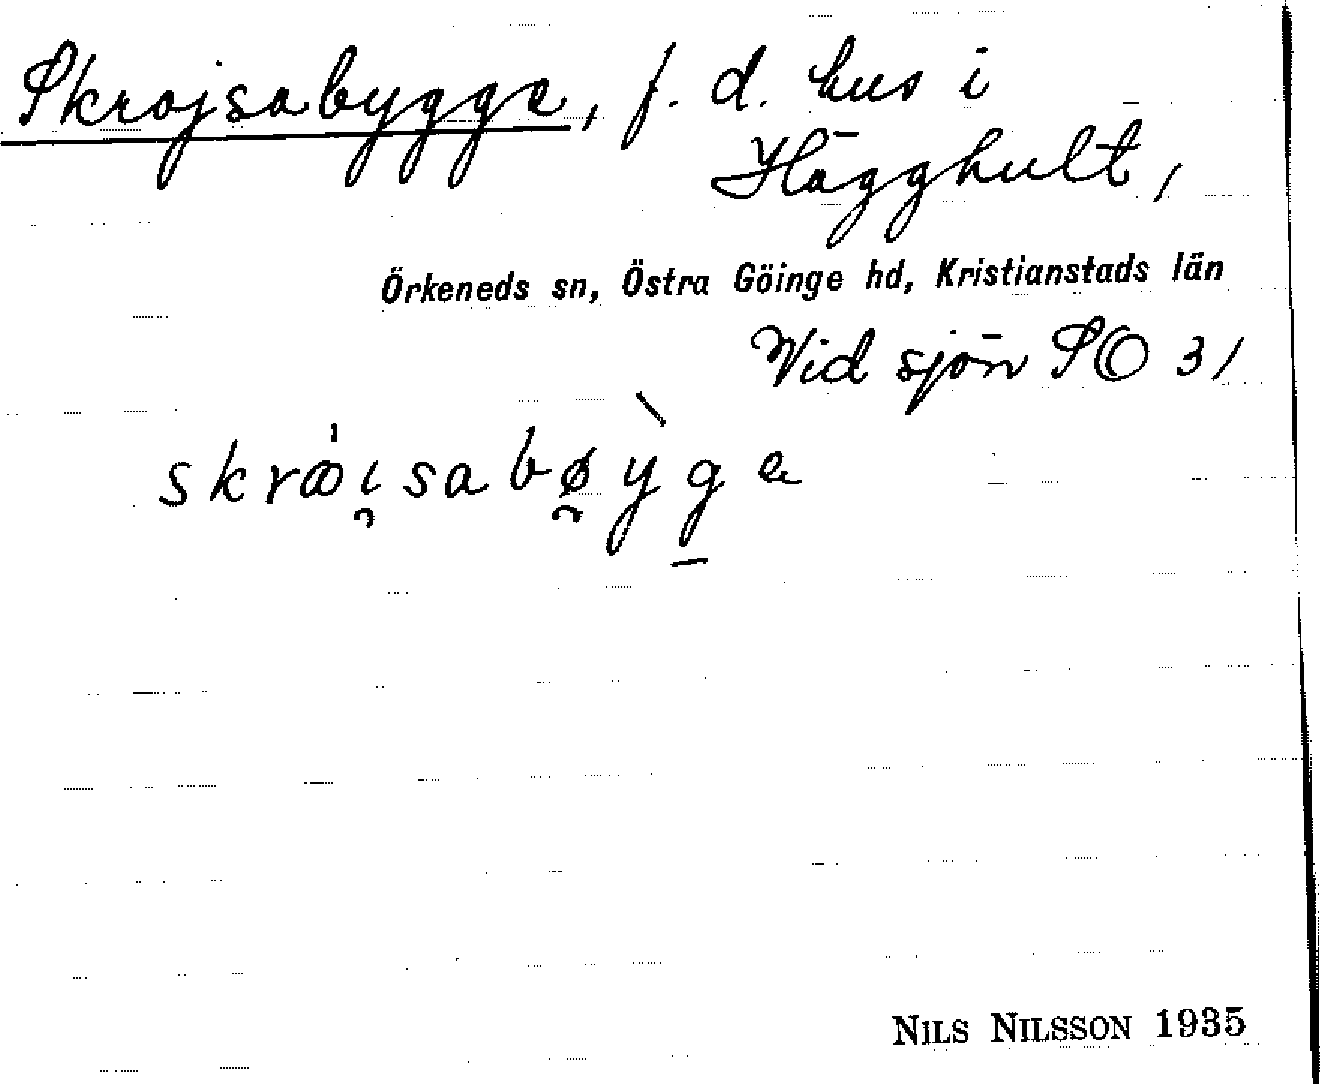 Skrojsabygge, f. d. hus i
Hägghult,
Örkeneds sn, Östra Göinge hd, Kristianstads län
Vid sjön SO 31
NILS NILSSON 1935